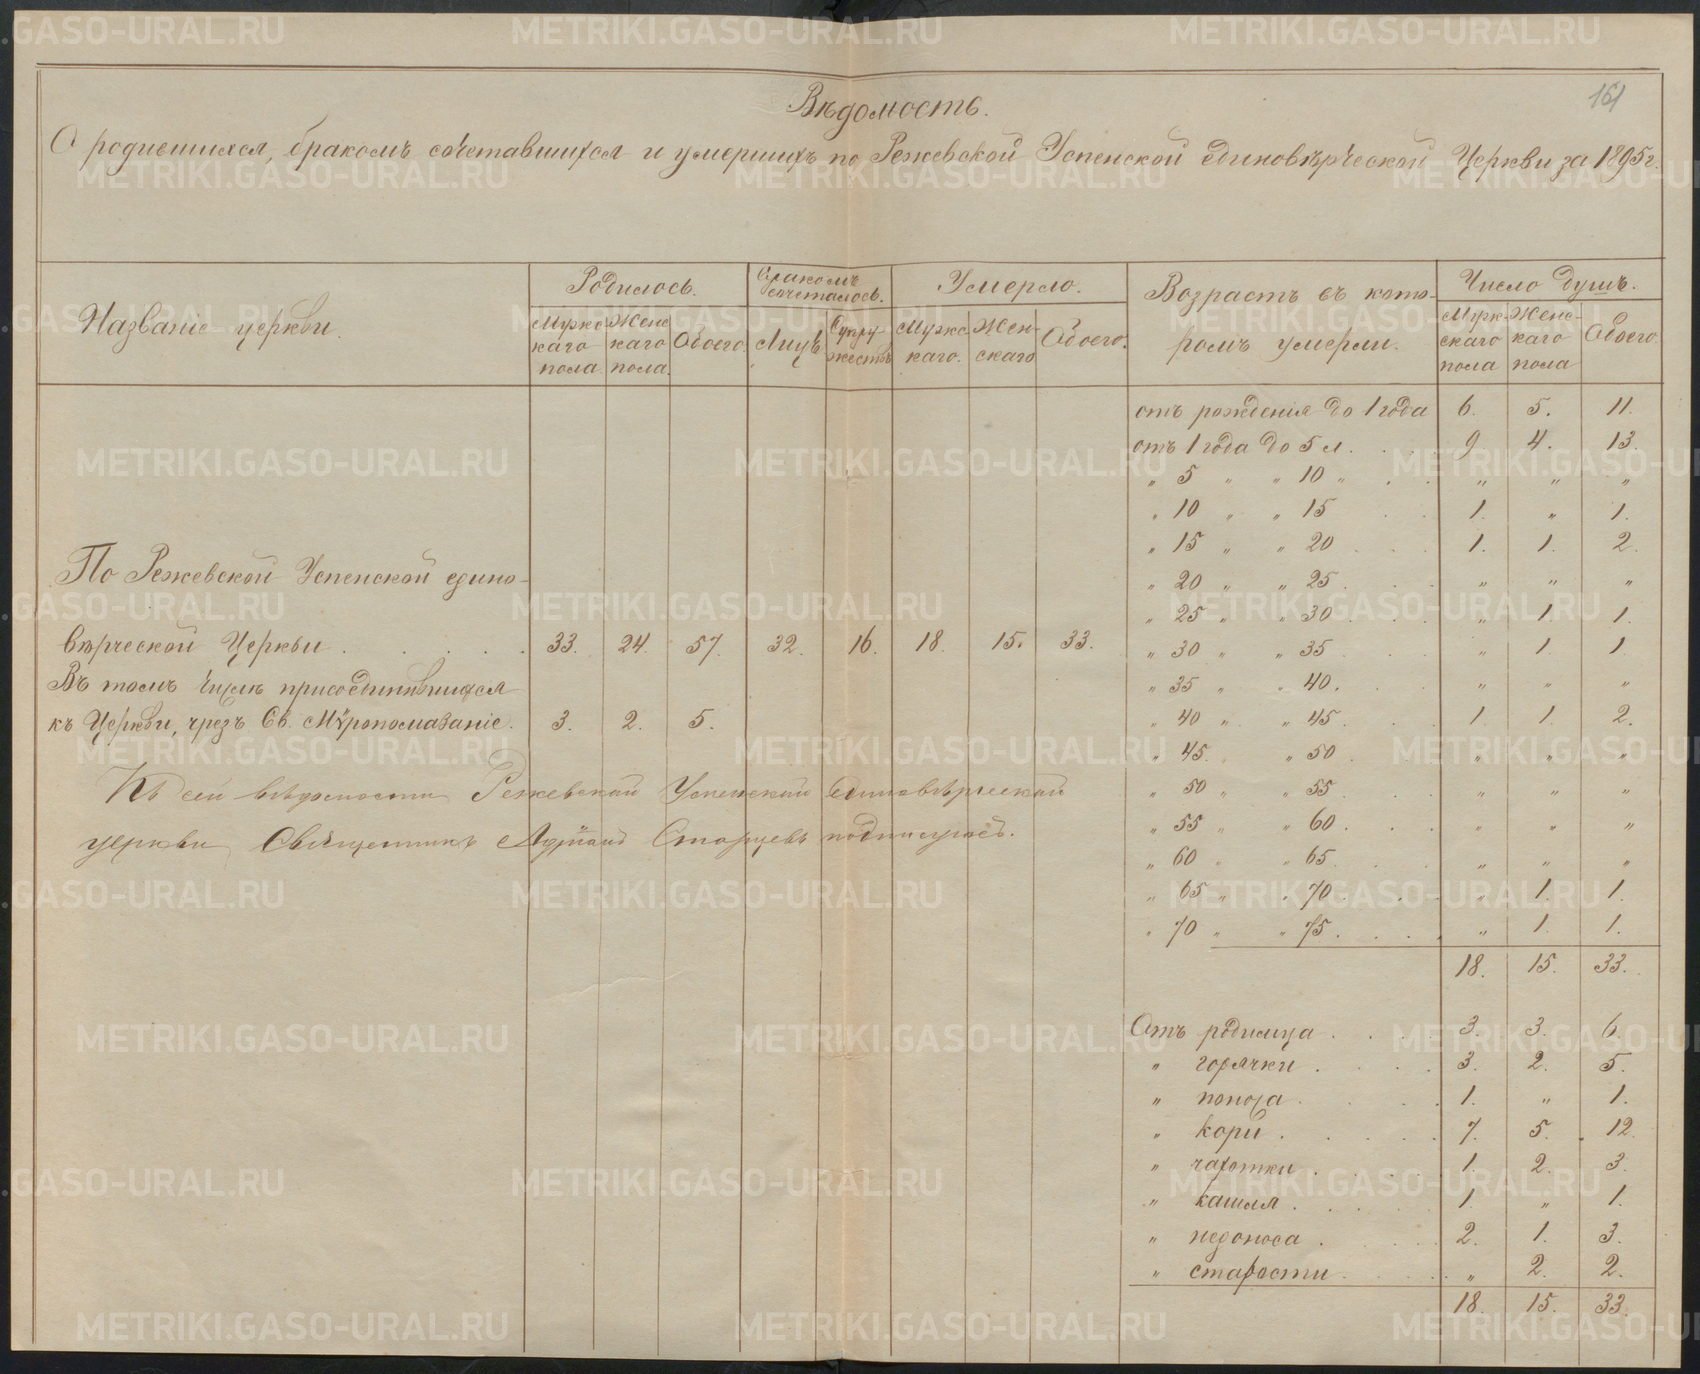 161
Вѣдомость.
О родившихся, бракомъ сочетавшихся и умершихъ по Режевской Успенской единовѣрческой Церкви за 1895 г.
Названіе церкви.
Родилось.
Мужскаго пола
Женскаго пола.
Обоего.
Бракомъ сочеталось.
Лицъ
Супружествъ
Умерло.
Мужскаго.
Женскаго
Обоего.
Возрастъ въ которомъ умерли.
Число душъ.
Мужскаго пола
Женскаго пола
Обоего.
отъ рожденія до 1 года 6. 5. 11.
отъ 1 года до 5 л. 9 4. 13.
„ 5 „ „ 10 „ „ „ „
„ 10 „ „ 15 1. „ 1.
„ 15 „ „ 20 1. 1. 2.
„ 20 „ „ 25 „ „ „
„ 25 „ „ 30 „ 1. 1.
„ 30 „ „ 35 „ 1 1.
„ 35 „ „ 40. „ „ „
„ 40 „ „ 45 1. 1. 2.
„ 45. „ „ 50 „ „ „
„ 50 „ „ 55 „ „ „
„ 55 „ „ 60. „ „ „
„ 60 „ „ 65. „ „ „
„ 65 „ „ 70. „ 1. 1.
„ 70 „ „ 75. „ 1. 1.
18. 15. 33.
По Режевской Успенской едино-
вѣрческой Церкви 33. 24. 57. 32. 16. 18. 15. 33.
Въ томъ числѣ присоединившихся
къ Церкви, чрезъ Св. Мѵропомазаніе. 3. 2. 5.
Къ сей вѣдомости Режевской Успенской единовѣрческой
церкви Священникъ Старцевъ подписуюсь.
Отъ родимца 3. 3. 6.
„ горячки 3. 2. 5.
„ поноса 1. „ 1.
„ кори 7. 5. 12.
„ чахотки 1. 2. 3.
„ кашля 1. „ 1.
„ недоноса 2. 1. 3.
„ старости „ 2. 2.
18. 15. 33.
METRIKI.GASO-URAL.RU